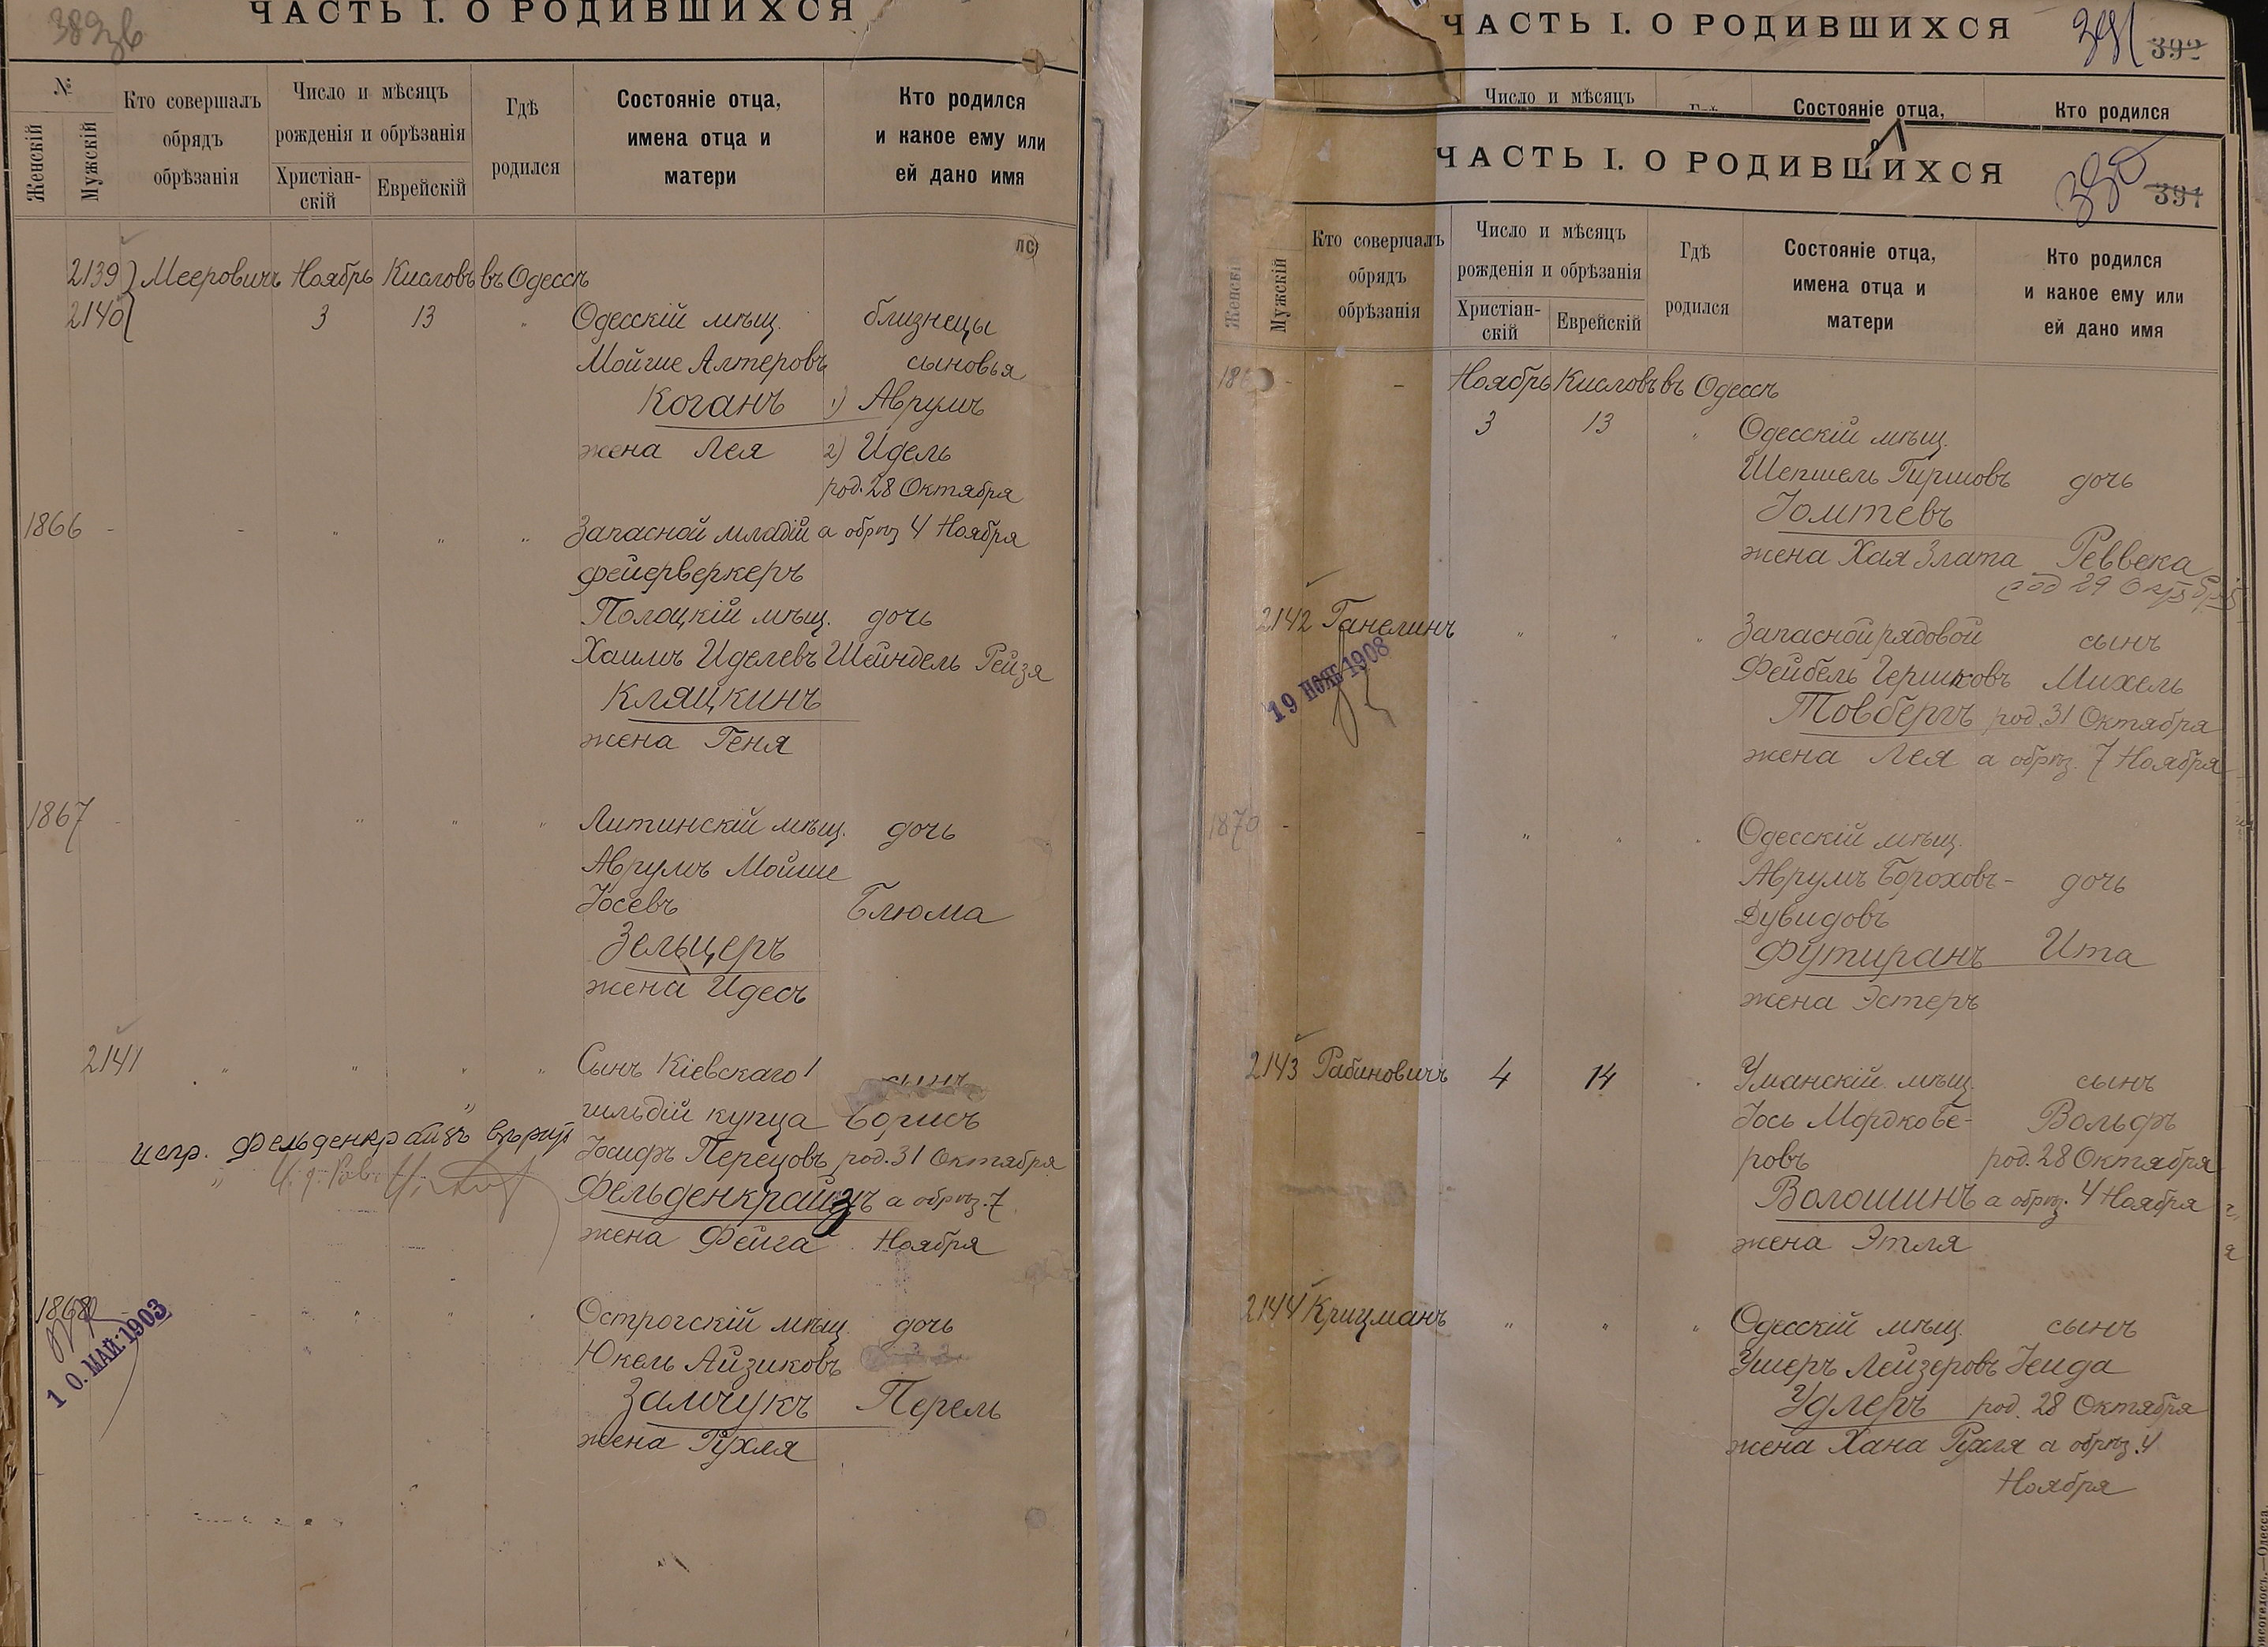 389 об
ЧАСТЬ I. О РОДИВШИХСЯ
№
Женскій
Мужскій
Кто совершалъ
обрядъ
обрѣзанія
Число и мѣсяцъ
рожденія и обрѣзанія
Христіан-
скій
Еврейскій
Гдѣ
родился
Состояніе отца,
имена отца и
матери
Кто родился
и какое ему или
ей дано имя
2139 Мееровичъ Ноябрь Кисловъ въ Одессѣ
2140 3 13 " Одесскій мѣщ. близнецы
Мойше Алтеровъ сыновья
Коганъ 1) Аврумъ
жена Лея 2) Идель
род. 28 Октября
1866 - - " " " Запасной младій а обрѣз 4 Ноября
фейерверкеръ
Полоцкій мѣщ. дочь
Хаимъ Иделевъ Шейндель Рейзя
Кляцкинъ
жена Геня
1867 - - " " " Литинскій мѣщ. дочь
Аврумъ Мойше
Іосевъ Блюма
Зельцеръ
жена Идесъ
2141 " " " " Сынъ Кіевскаго 1 сынъ
гильдій купца Борисъ
испр. Фельденкрайзъ вѣрить
Іосифъ Перецовъ род. 31 Октября
Фельденкрайзъ а обрѣз. 7
жена Фейга Ноября
1868 - - " " " Острогскій мѣщ. дочь
10. МАЙ. 1903
Юкель Айзиковъ
Замчукъ Перель
жена Рухля
ЧАСТЬ I. О РОДИВШИХСЯ
391 392
Число и мѣсяцъ
Состояніе отца,
Кто родился
ЧАСТЬ I. О РОДИВШИХСЯ
390 391
Женскій
Мужскій
Кто совершалъ
обрядъ
обрѣзанія
Число и мѣсяцъ
рожденія и обрѣзанія
Христіан-
скій
Еврейскій
Гдѣ
родился
Состояніе отца,
имена отца и
матери
Кто родился
и какое ему или
ей дано имя
186 - - Ноябрь Кисловъ въ Одессѣ
3 13 " Одесскій мѣщ.
Шепшель Гиршовъ дочь
Іомтевъ
жена Хая Злата Реввека
род 29 Октября
2142 Ганелинъ " " " Запасной рядовой сынъ
19 НОЯБ 1908
Фейбель Гершковъ Михель
Товбергъ род. 31 Октября
жена Лея а обрѣз. 7 Ноября
1870 - - " " " Одесскій мѣщ.
Аврумъ Бороховъ- дочь
Дувидовъ
Футиранъ Ита
жена Эстеръ
2143 Рабиновичъ 4 14 " Уманскій мѣщ. сынъ
Іось Мордко Бе- Вольфъ
ровъ род. 28 Октября
Волошинъ а обрѣз. 4 Ноября
жена Этля
2144 Крицманъ " " " Одесскій мѣщ. сынъ
Ушеръ Лейзеровъ Іеида
Удлеръ род. 28 Октября
жена Хана Рухля а обрѣз. 4
Ноября